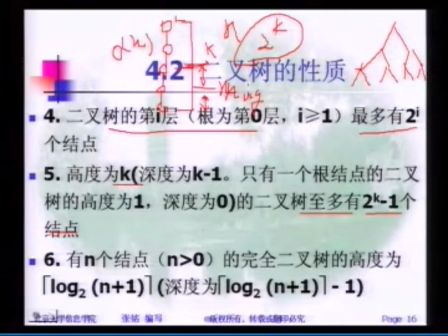 k
2^k
4.2 二叉树的性质
4. 二叉树的第i层（根为第0层，i≥1）最多有2^i
个结点
5. 高度为k(深度为k-1。只有一个根结点的二叉
树的高度为1，深度为0)的二叉树至多有2^k-1个
结点
6. 有n个结点（n>0）的完全二叉树的高度为
⌈log₂ (n+1)⌉ (深度为⌈log₂ (n+1)⌉ - 1)
张铭 编写
©版权所有，转载或翻印必究
Page 16